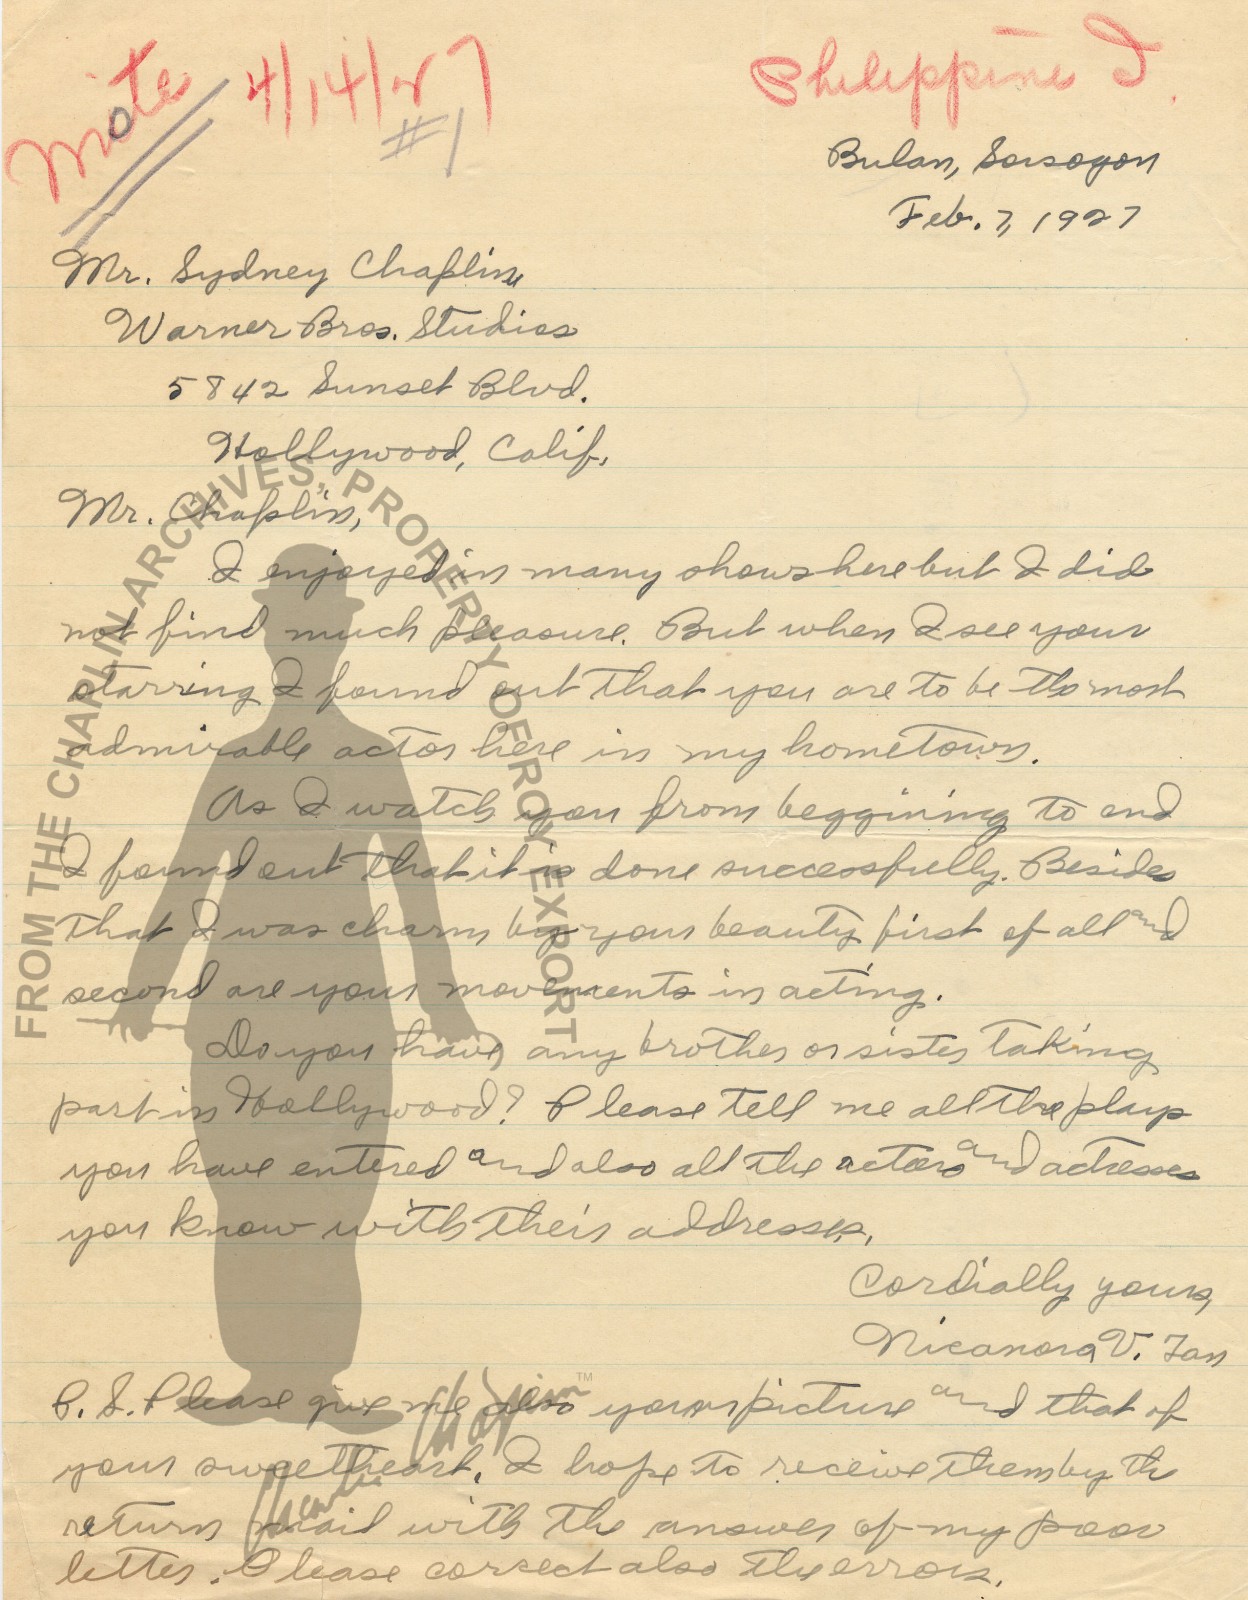 Note 4/14/27
#1
Philippine I.
Bulan, Sorsogon
Feb. 7, 1927
Mr. Sydney Chaplin,
Warner Bros. Studios
5842 Sunset Blvd.
Hollywood, Calif.
Mr. Chaplin,
I enjoyed in many shows here but I did
not find much pleasure. But when I see your
starring I found out that you are to be the most
admirable actor here in my hometown.
As I watch you from beggining to end
I found out that it is done successfully. Besides
that I was charm by your beauty first of all and
second are your movements in acting.
Do you have any brother or sister taking
part in Hollywood? Please tell me all the plays
you have entered and also all the actors and actresses
you know with their addresses.
Cordially yours,
Nicanora V. Tan
P.S. Please give me also your picture and that of
your sweetheart. I hope to receive them by the
return mail with the answer of my poor
letter. Please correct also the errors.
FROM THE CHAPLIN ARCHIVES, PROPERTY OF ROY EXPORT
Charlie Chaplin™